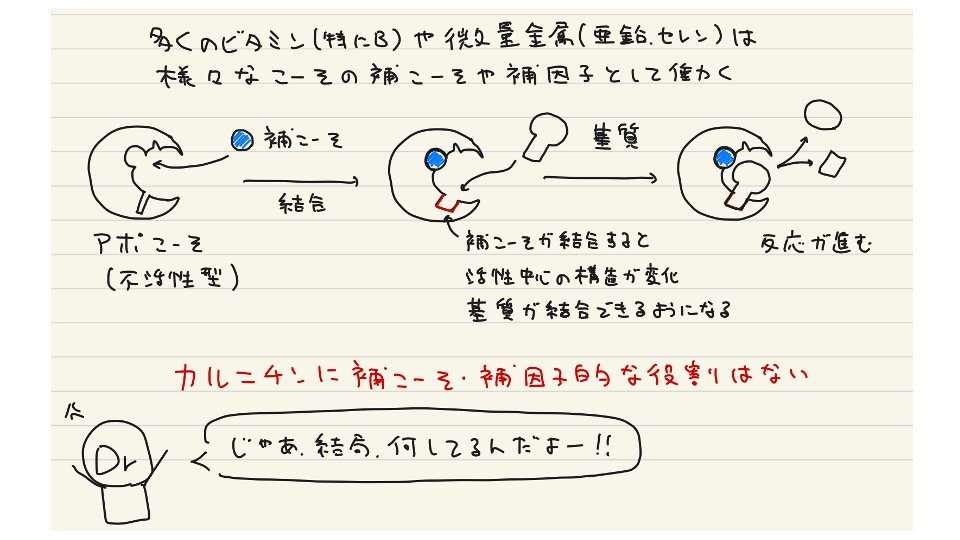 多くのビタミン(特にB)や微量金属(亜鉛.セレン)は
様々なこーその補こーそや補因子として働かく
補こーそ
結合
アポこーそ
(不活性型)
基質
補こーそが結合すると
活性中心の構造が変化
基質が結合できるようになる
反応が進む
カルニチンに補こーそ・補因子的な役割はない
Dr
じゃあ.結局.何してるんだよー!!